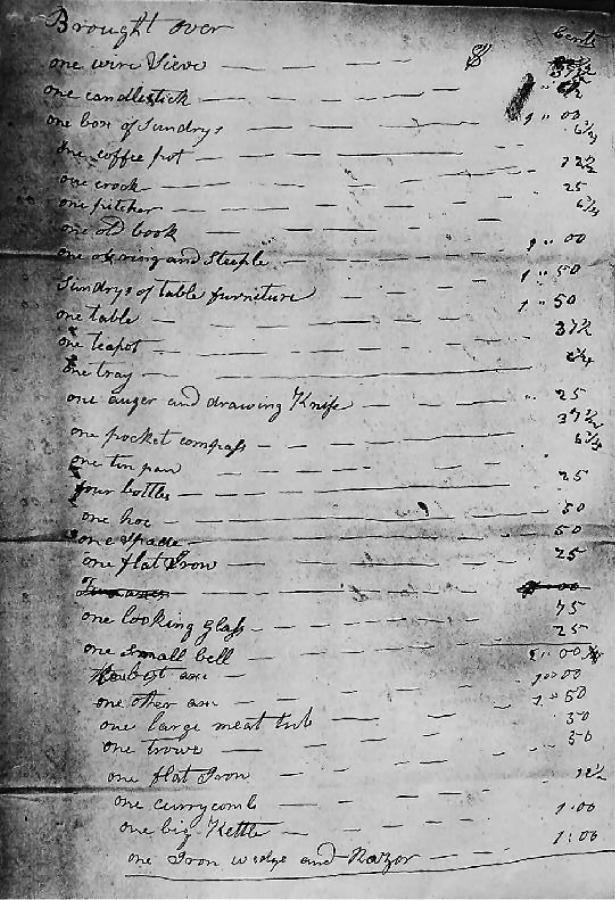 Brought over cents
one wire Sieve — — — — $ 37½
one candlestick — — — —
one box of Sundrys — — — 1 " 00
one coffee pot — — — — 6¼
one crock — — — — 12½
one pitcher — — — — 25
one old book — — — 6¼
one and Steeple — — — — 1 " 00
Sundrys of table furniture — — — 1 " 50
one table — — — — 1 " 50
one teapot — — — — 37½
one tray — — — 6¼
one auger and drawing Knife — — — " 25
one pocket compass — — — 37½
one tin pan — — — 6¼
four bottles — — — — 25
one hoe — — — — 50
one Spade — — — — 50
one flat Iron — — — — 25
one looking glass — — — 75
one small bell — — — 25
best axe — — — 2 " 00
one other axe — — — 1 " 00
one large meat tub — — — 1 " 50
one — — — 50
one flat Iron — — — 50
one currycomb — — — 12½
one big Kettle — — — 1.00
one Iron wedge and Razor — — — 1:00